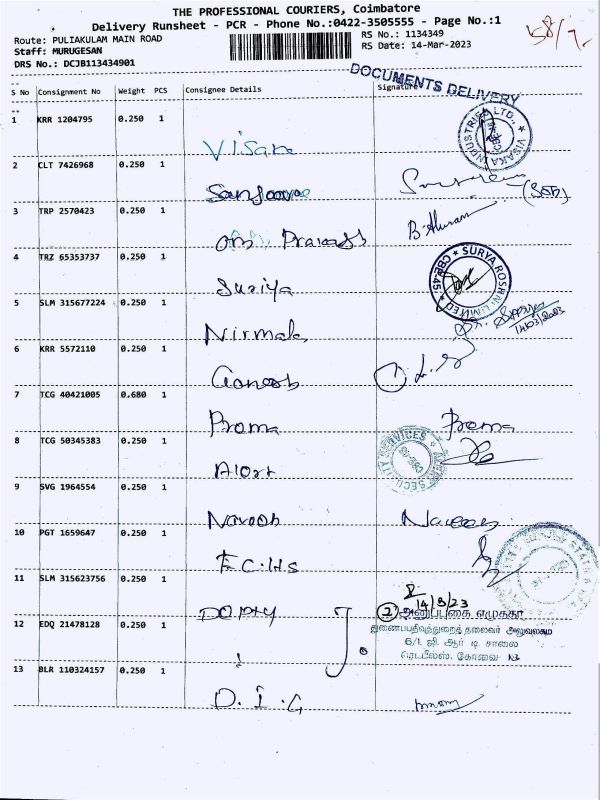 THE PROFESSIONAL COURIERS, Coimbatore
Delivery Runsheet - PCR - Phone No.:0422-3505555 - Page No.:1
Route: PULIAKULAM MAIN ROAD
Staff: MURUGESAN
DRS No.: DCJB113434901
RS No.: 1134349
RS Date: 14-Mar-2023
58/7
DOCUMENTS DELIVERY
S No Consignment No Weight PCS Consignee Details Signature
1 KRR 1204795 0.250 1
Visaka
VISAKA INDUSTRIES LTD.,
2 CLT 7426968 0.250 1
3 TRP 2570423 0.250 1
4 TRZ 65353737 0.250 1
Suriya
SURYA ROSHNI LIMITED
CBE-45
5 SLM 315677224 0.250 1
Nirmala
14/03/2023
6 KRR 5572110 0.250 1
Ganesh
7 TCG 40421005 0.680 1
Prema
Prema
8 TCG 50345383 0.250 1
Alert
ALERT SECURITY SERVICES
9 SVG 1964554 0.250 1
Naveen
Naveen
10 PGT 1659647 0.250 1
E.C.H.S
11 SLM 315623756 0.250 1
14/3/23
2 அனுப்புகை எழுத்தர்
12 EDQ 21478128 0.250 1
துணைப்பதிவுத்துறைத் தலைவர் அலுவலகம்
6/1, ஜி. ஆர் டி. சாலை
ரெட்பீல்ஸ், கோவை
13 BLR 110324157 0.250 1
D.I.G